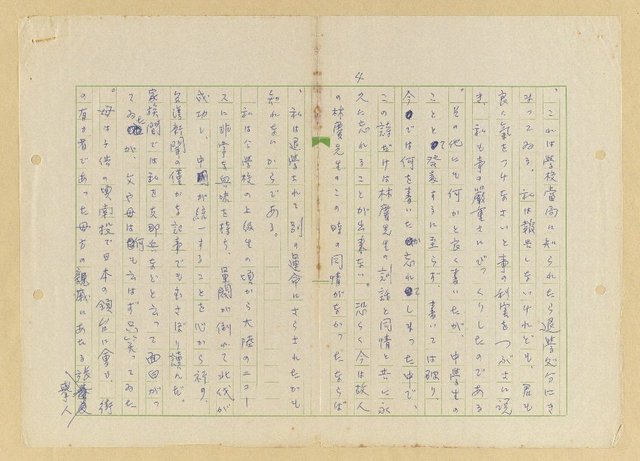 、これは学校当局に知られたら退学処分にき
まってゐる。私は報告しないけれども、君も
良く気をつけなさいと事の利害をつぶさに説
き、私も事の厳重さにびっくりしたのである
。その他にも何かと良く書いたが、中学生の
ことゝて発表するに至らず、書いては破り、
今では何を書いたか忘れてしまった中で、
この詩だけは林慶先生の訓話と同情と共に永
久に忘れることが出来ない。恐らく今は故人
の林慶先生のこの時の同情がなかったならば
4
、私は退学されて別の運命にさらされたかも
知れないからである。
私は公学校の上級生の頃から大陸のニュー
スに非常な興味を持ち、軍閥が倒れて北伐が
成功し、中国が統一することを心から祈り、
台湾新聞の僅かな記事でもむさぼり読んだ。
家族間では私を支那兵などと云って面白がっ
てゐたが、父や母は何も云はず只笑ってゐた
。母は子供の頃南投で日本の領台に会ひ、街
の有力者であった母方の親戚にあたる張
挙人